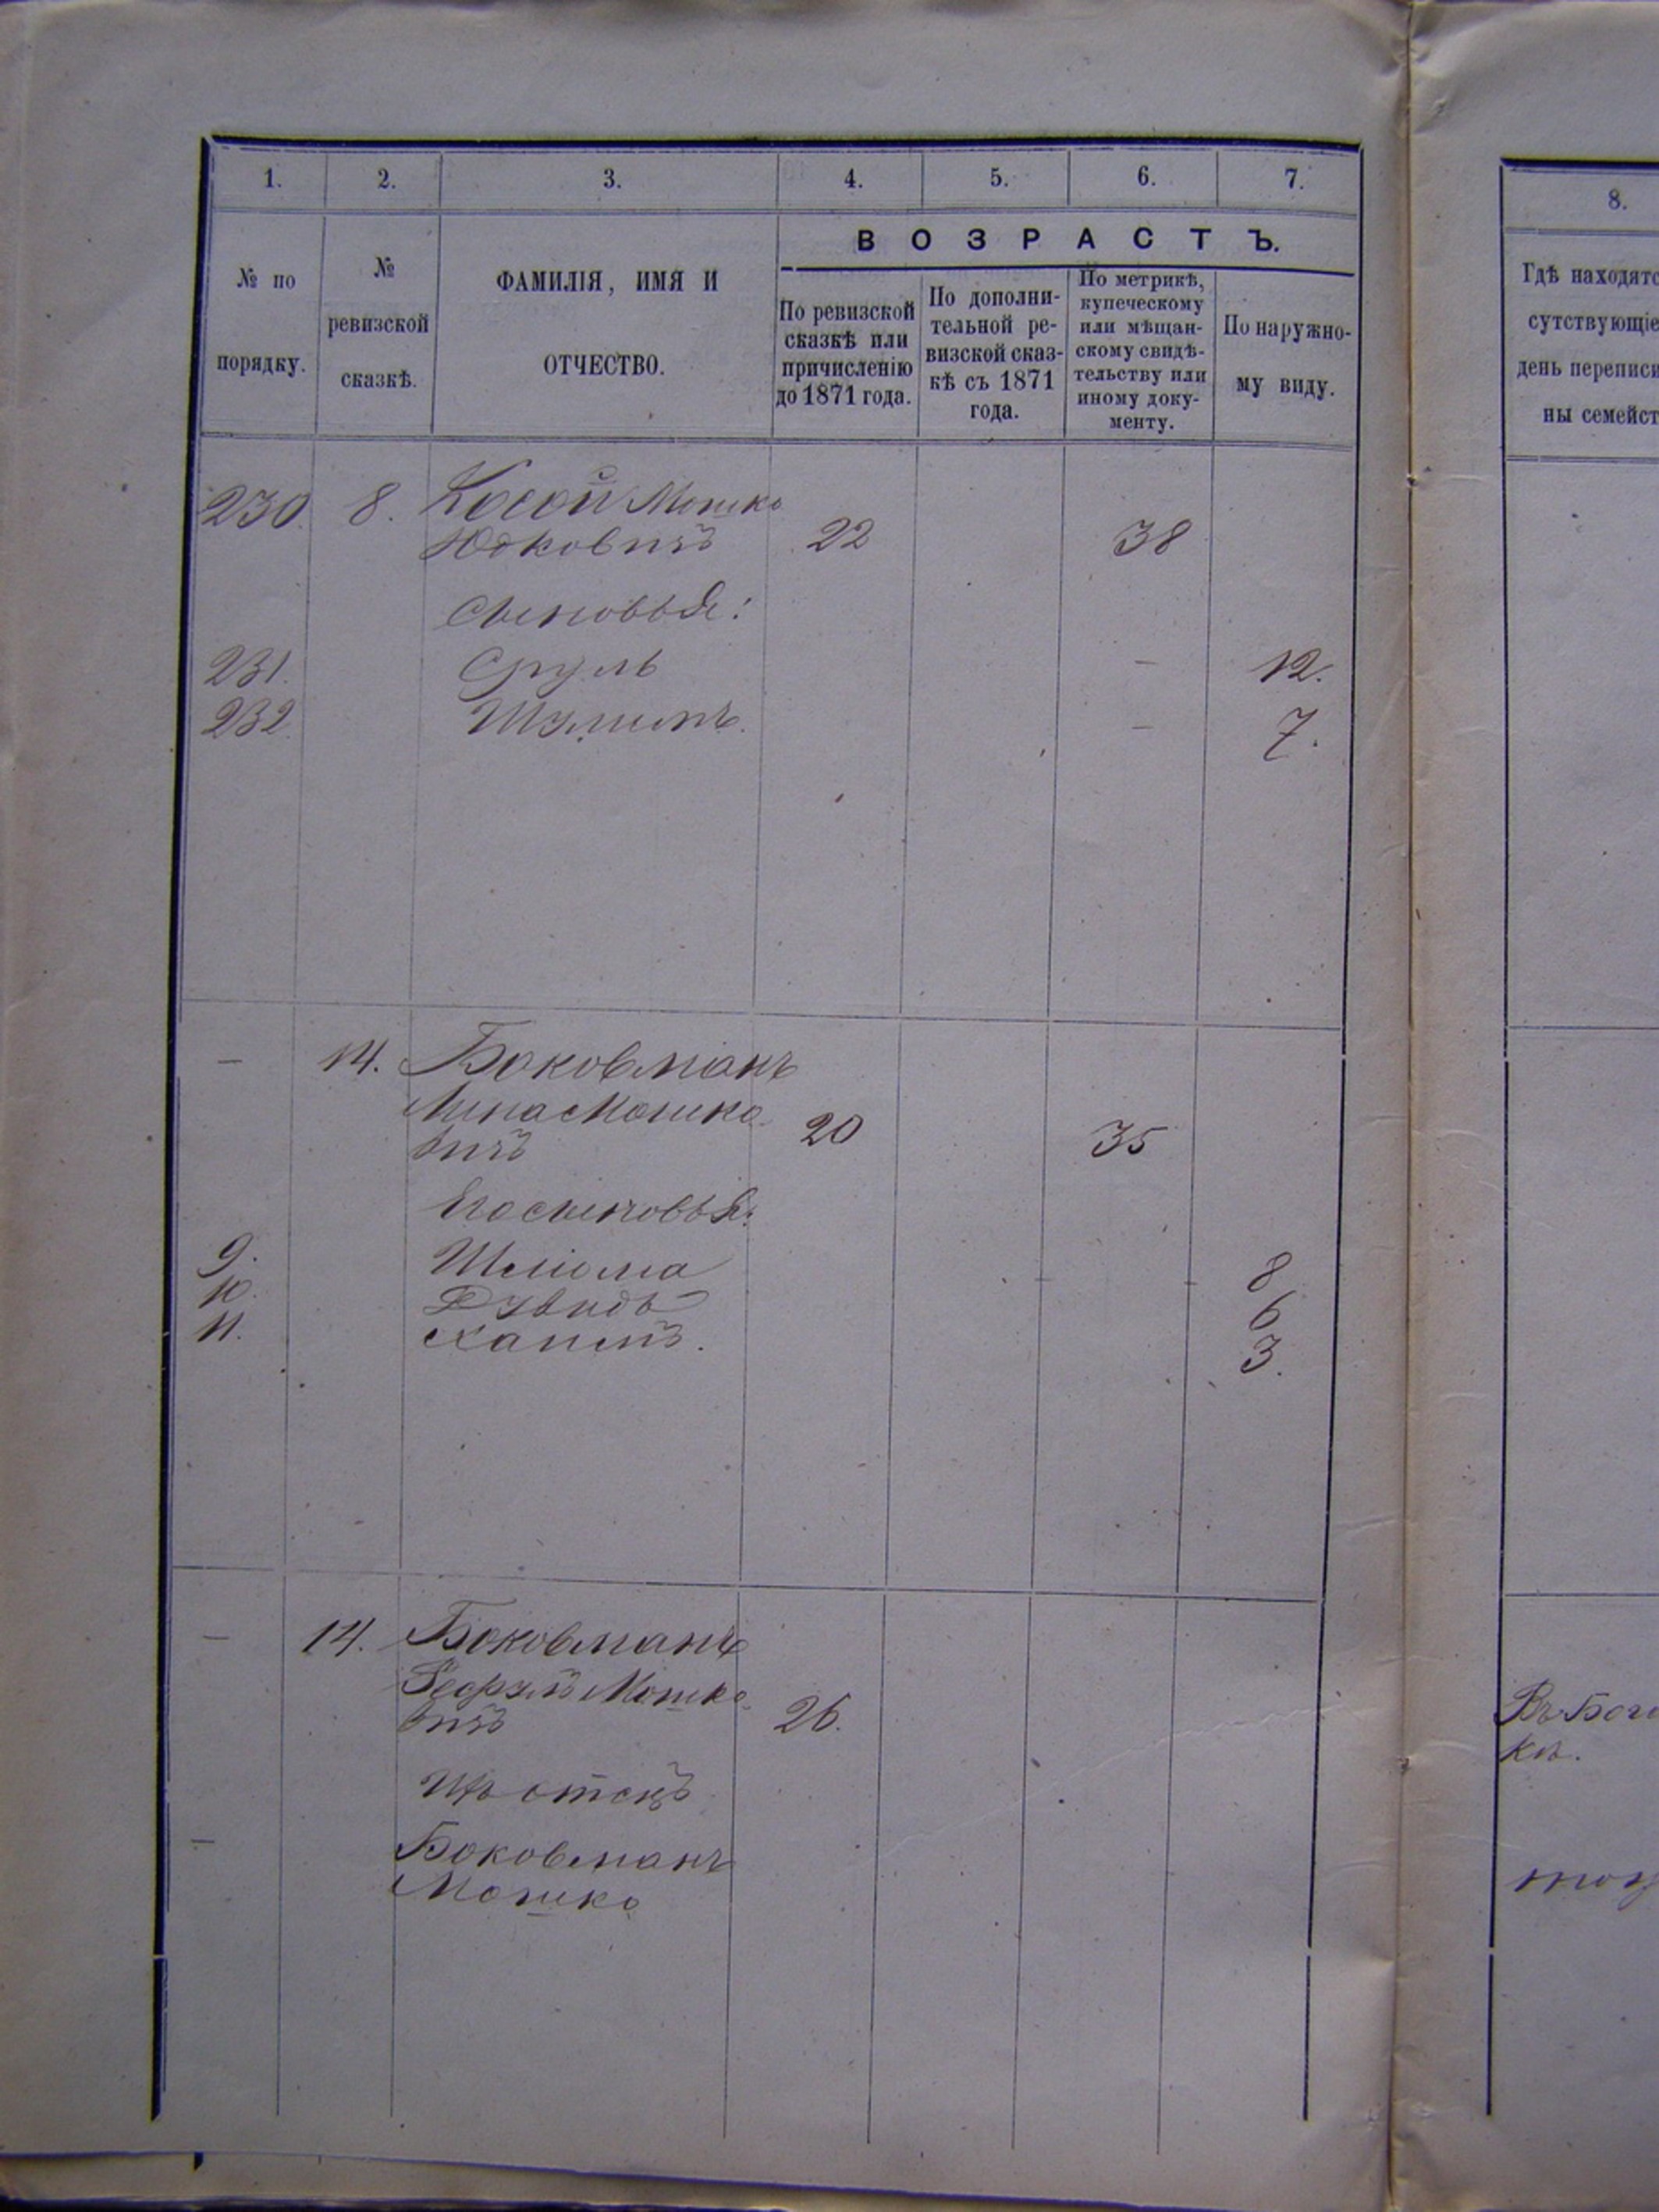 1. 2. 3. 4. 5. 6. 7.
В О З Р А С Т Ъ.
№ по
порядку.
№
ревизской
сказкѣ.
ФАМИЛІЯ, ИМЯ И
ОТЧЕСТВО.
По ревизской
сказкѣ или
причисленію
до 1871 года.
По дополни-
тельной ре-
визской сказ-
кѣ съ 1871
года.
По метрикѣ,
купеческому
или мѣщан-
скому свидѣ-
тельству или
иному доку-
менту.
По наружно-
му виду.
230. 8. Косой Мошко
Юдковичъ 22 38
Сыновья:
231. Сруль — 12.
232. Шулимъ. — 7.
— 14. Боковманъ
Мошко-
вичъ 20 35
Его сыновья:
9. Шліома 8
10. Дувидъ 6
11. 3.
— 14. Боковманъ
Мошко-
вичъ 26.
Ихъ отецъ
— Боковманъ
Мошко
8.
Гдѣ находятс
сутствующіе
день переписи
ны семейст
Въ Бог
кѣ.